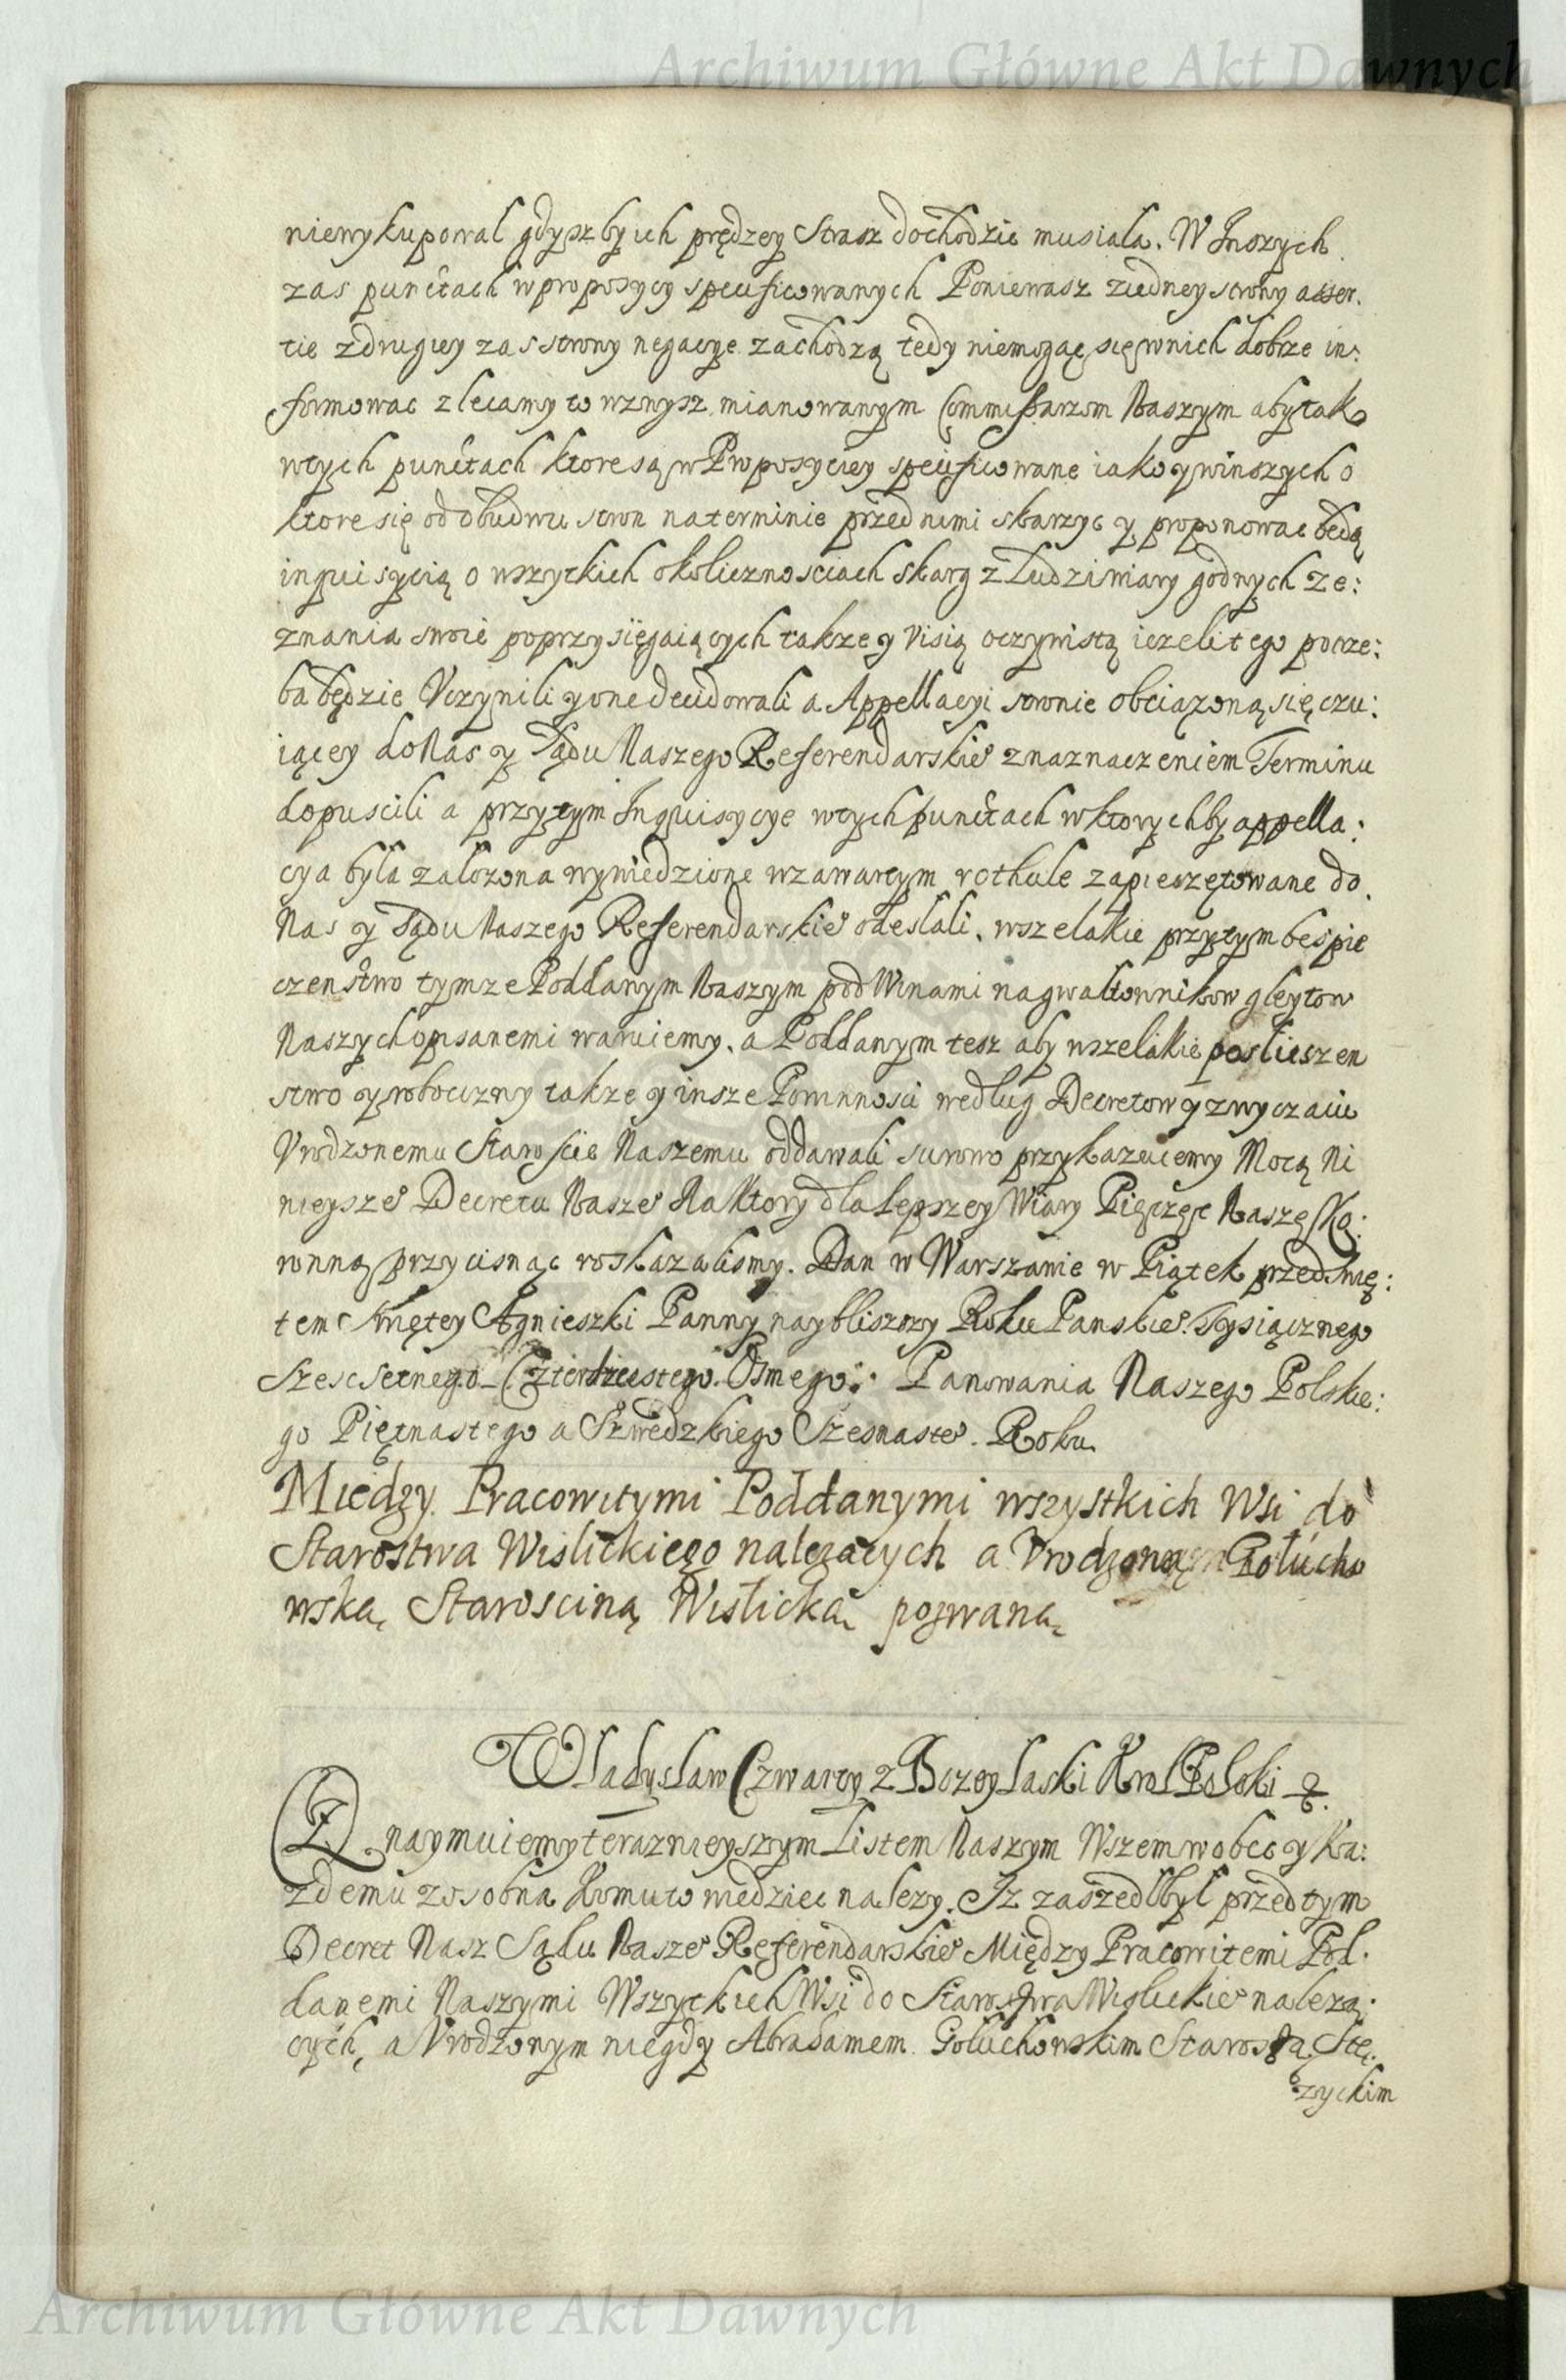 Archiwum Główne Akt Dawnych
niewykupowal gdyszby ich prędzey Strasz dochodzic musiala. W Inszych
zas punctach w proposycy specificowanych Poniewasz ziedney strony asser.
tie zdrugiey zas strony negacye zachodzą tedy niemogąc się wnich dobrze in:
formowac zlecamy to wzwysz mianowanym Commissarzom Naszym aby tak
wtych punctach ktore są w Proposyciey specificowane iako y winszych o
ktore się od obudwu stron na terminie przed nimi skarzyc y proponowac będą
inquisycią o wszytkich okolicznosciach skarg z Ludzi wiary godnych ze:
znania swoie poprzysięgaiących takze y Visią oczywistą iezeli tego potrze:
ba będzie Vczynili y one decidowali a Appellacyi stronie obciązoną się czu:
iącey do Nas y Sądu Naszego Referendarskie° z naznaczeniem Terminu
dopuscili a przytym Inquisycye wtych punctach w ktorychby appella:
cya była załozona wywiedzione w zawartym rothule zapieczętowane do
Nas y Sądu Naszego Referendarskie° odeslali, wszelakie przytym bespie
czenstwo tymze Poddanym Naszym pod Winami na gwaltownikow gleytow
Naszych opisanemi waruiemy, a Poddanym tesz aby wszelakie poslieszen
stwo y roboczny takze y insze Powinnosci według Decretow y zwyczaiu
Vrodzonemu Staroscie Naszemu oddawali surowo przykazuiemy Mocą Ni
nieysze° Decretu Nasze° Na Ktory dla Lepszey Wiary Pięczęc Naszę Ko:
ronną przycisnąc roskazalismy. Dan w Warszawie w Piątek przed Swię:
tem Swiętey Agnieszki Panny naybliszszy Roku Panskie°. Tysiącznego
Szescsetnego Czterdziestego Osmego: Panowania Naszego Polskie:
go Piętnastego a Szwedzkiego Szesnaste°. Roku
Miedzy Pracowitymi Poddanymi wszystkich Wsi do
Starostwa Wislickięgo nalezących a Vrodzoną Gołucho
wską Starosciną Wislicką pozwaną
Władysław Czwarty z Bozey Łaski Krol Polski &.
Znaymuiemy teraznieyszym Listem Naszym Wszem wobec y Ka:
zdemu zosobna Komu to wiedziec nalezy. Iz zaszedł był przed tym
Decret Nasz Sądu Nasze° Referendarskie° Między Pracowitemi Pod.
danemi Naszymi Wszytkich Wsi do Starostwa Wislickie° nalezą:
cych, a Vrodzonym niegdy Abrahamem Gołuchowskim Starostą Stę:
zyckim
Archiwum Główne Akt Dawnych